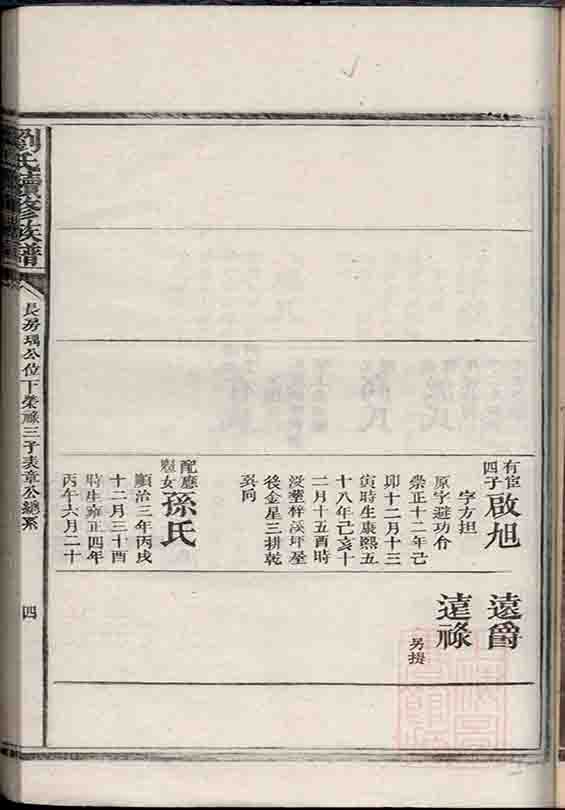 有宦
四子
啟旭
字方担
原字避功令
崇正十二年己
卯十二月十三
寅時生康熙五
十八年己亥十
二月十五酉時
後金星三耕乾
巽向
配應
女
孫氏
順治三年丙戌
十二月三十酉
時生雍正四年
丙午六月二十
遠爵
遠祿
另提
劉氏續修族譜
長房瑀公位下榮祿三子表章公總系
四